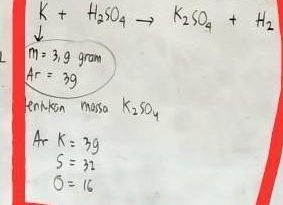 K + H₂SO₄ → K₂SO₄ + H₂
m = 3,9 gram
Ar = 39
tentukan massa K₂SO₄
Ar K = 39
S = 32
O = 16